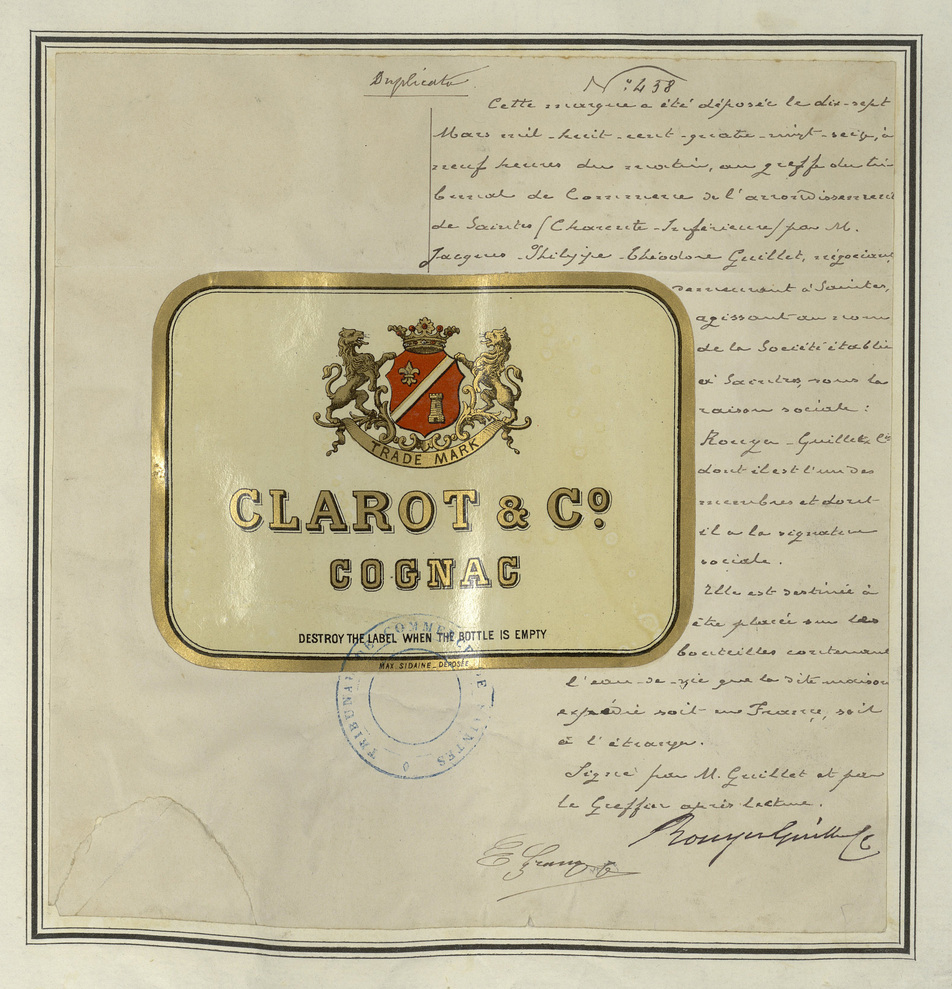 Duplicata
N° 438
Cette marque a été déposée le dix-sept
Mars mil-huit-cent-quatre-vingt-seize, à
neuf heures du matin, au greffe du tri
bunal de Commerce de l'arrondissement
de Saintes (Charente-Inférieure) par M.
Jacques-Philippe-Théodore Guillet, négociant
demeurant à Saintes,
agissant au nom
de la Société établie
à Saintes sous la
raison sociale :
Rouyer-Guillet & Cie
dont il est l'un des
membres et dont
il a la signature
sociale.
Elle est destinée à
être placée sur les
bouteilles contenant
l'eau-de-vie que la dite maison
expédie soit en France, soit
à l'étranger.
Signé par M. Guillet et par
le Greffier après lecture.
Rouyer Guillet & Cie
TRADE MARK
CLAROT & Cº
COGNAC
DESTROY THE LABEL WHEN THE BOTTLE IS EMPTY
MAX. SIDAINE_DÉPOSÉE
TRIBUNAL DE COMMERCE DE SAINTES